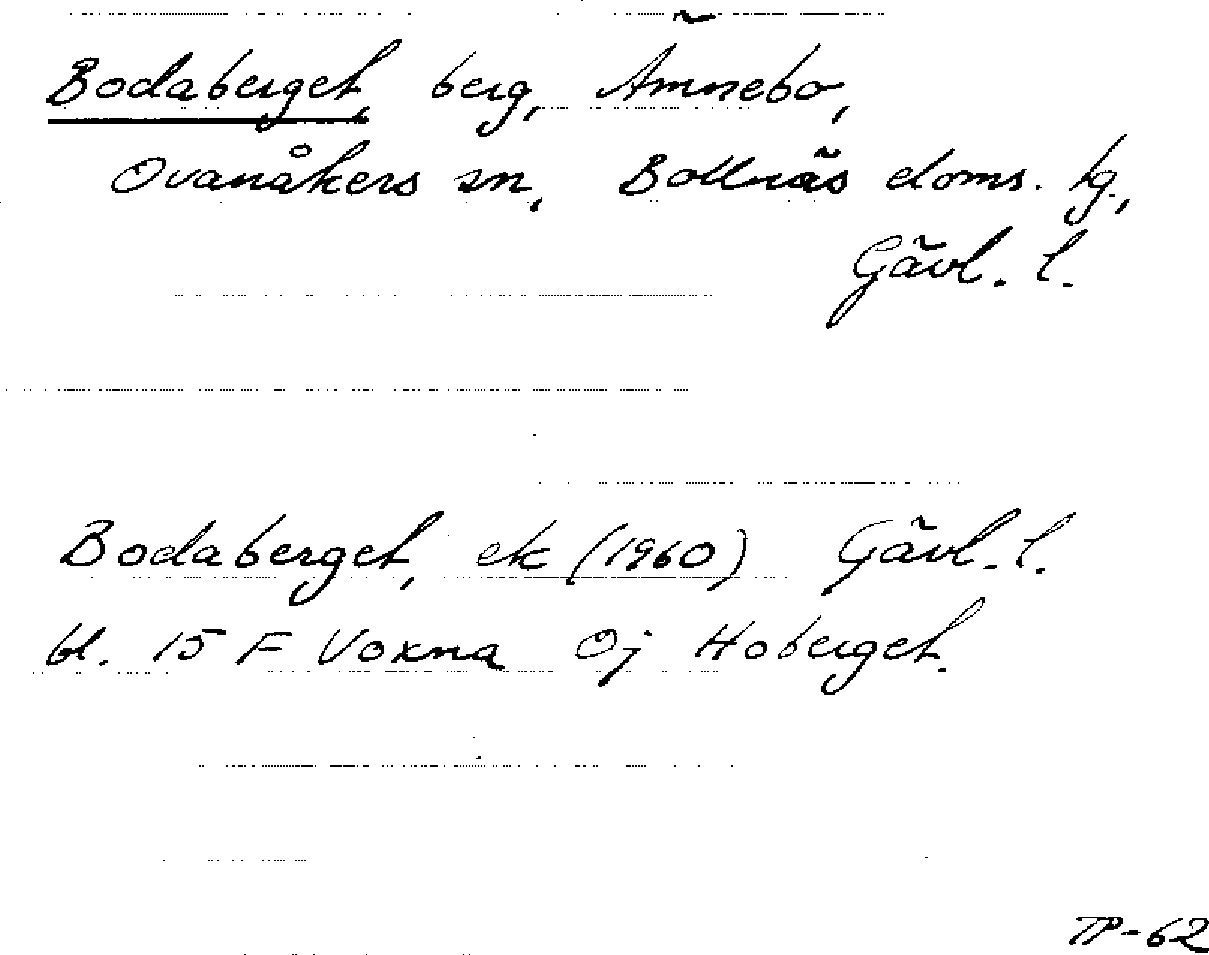 Bodaberget, berg, Ämnebo,
Ovanåkers sn, Bollnäs doms. hg.,
Gävl. l.
Bodaberget, ek (1960) Gävl. l.
bl. 15 F Voxna Öj Hoberget.
TP-62